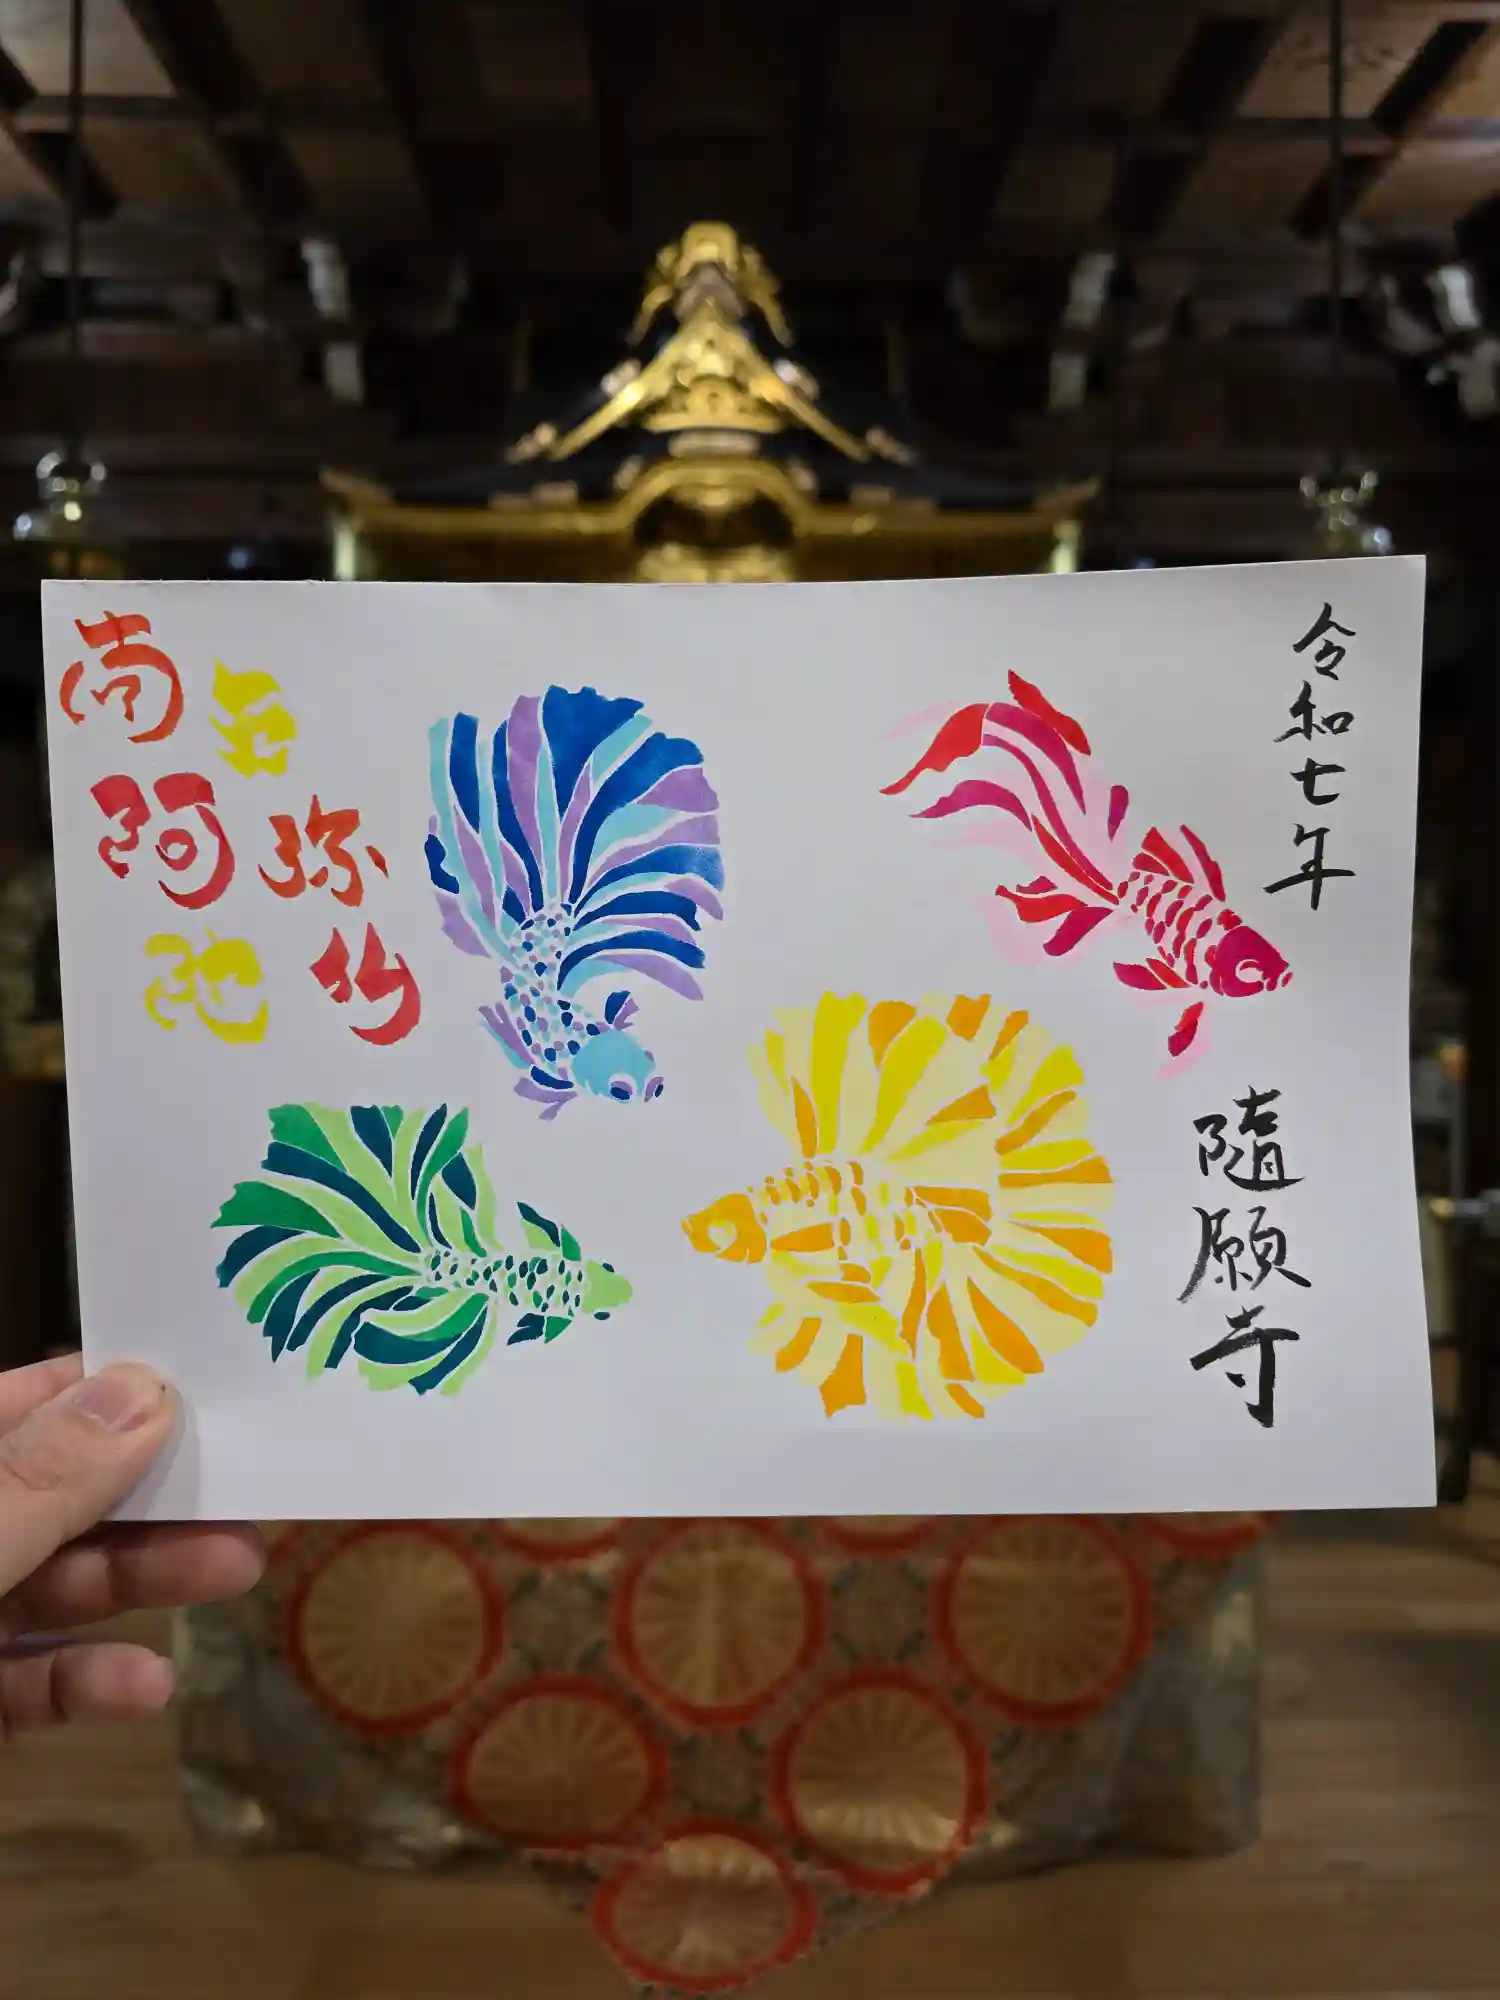 令和七年
随願寺
南無
阿弥
陀仏